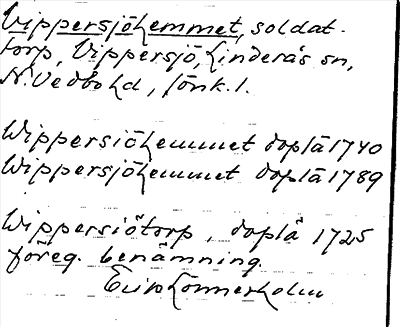 Vippersjöhemmet, soldat-
torp, Vippersjö, Linderås sn,
N. Vedbo hd, Jönk. l.
Wippersiöhemmet doplä 1740
Wippersjöhemmet doplä 1789
Wippersiötorp, doplä 1725
föreg. benämning.
Erik Lönnerholm